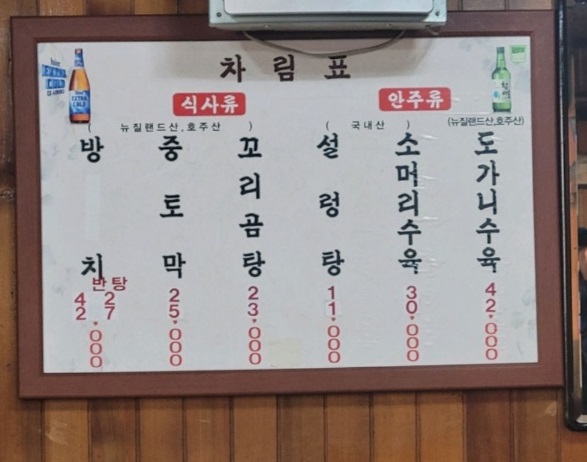 차림표
식사류
안주류
( 뉴질랜드산,호주산 )
( 국내산 )
(뉴질랜드산,호주산)
방치
반 탕
42 27,000
중토막
25,000
꼬리곰탕
23,000
설렁탕
11,000
소머리수육
30,000
도가니수육
42,000
EXTRA COLD